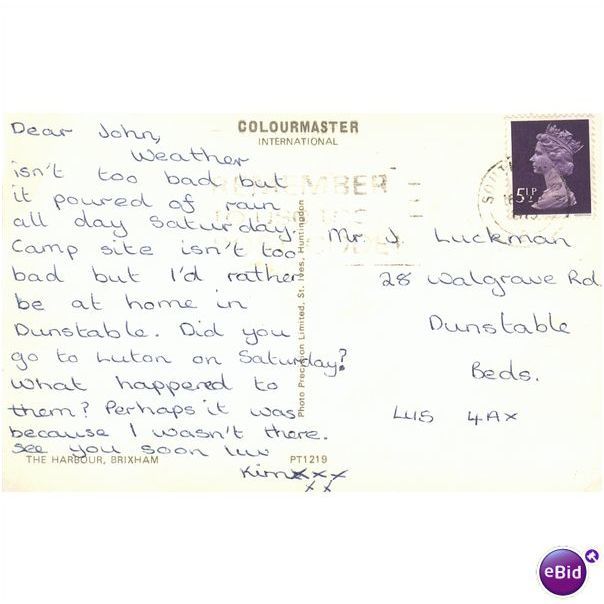 Dear John,
Weather
isn't too bad but
it poured of rain
all day Saturday.
Camp site isn't too
bad but I'd rather
be at home in
Dunstable. Did you
go to Luton on Saturday?
What happened to
them? Perhaps it was
because I wasn't there.
See you soon luv
Kim xxx
xx
THE HARBOUR, BRIXHAM
PT1219
COLOURMASTER
INTERNATIONAL
Photo Precision Limited, St. Ives, Huntingdon
REMEMBER
TO USE THE
POSTCODE
5½P
Mr J Luckman
28 Walgrave Rd
Dunstable
Beds.
LU5 4AX
eBid